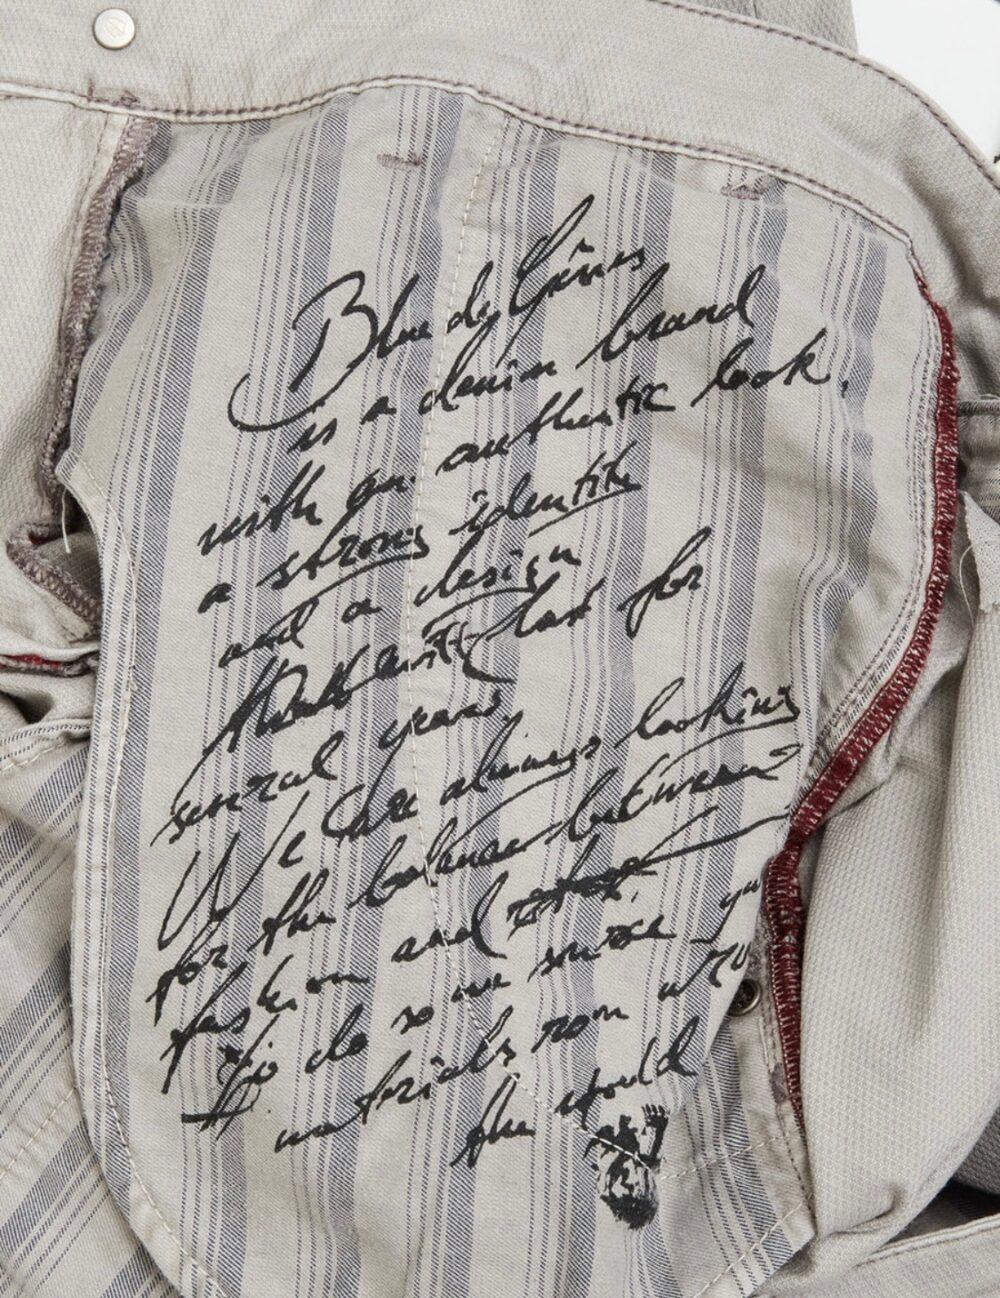 Blue de Gênes
is a denim brand
with an authentic look,
a strong identity
and a design
that last for
several years
We are always looking
for the balance between
fashion and
To do so we source
materials from
the world